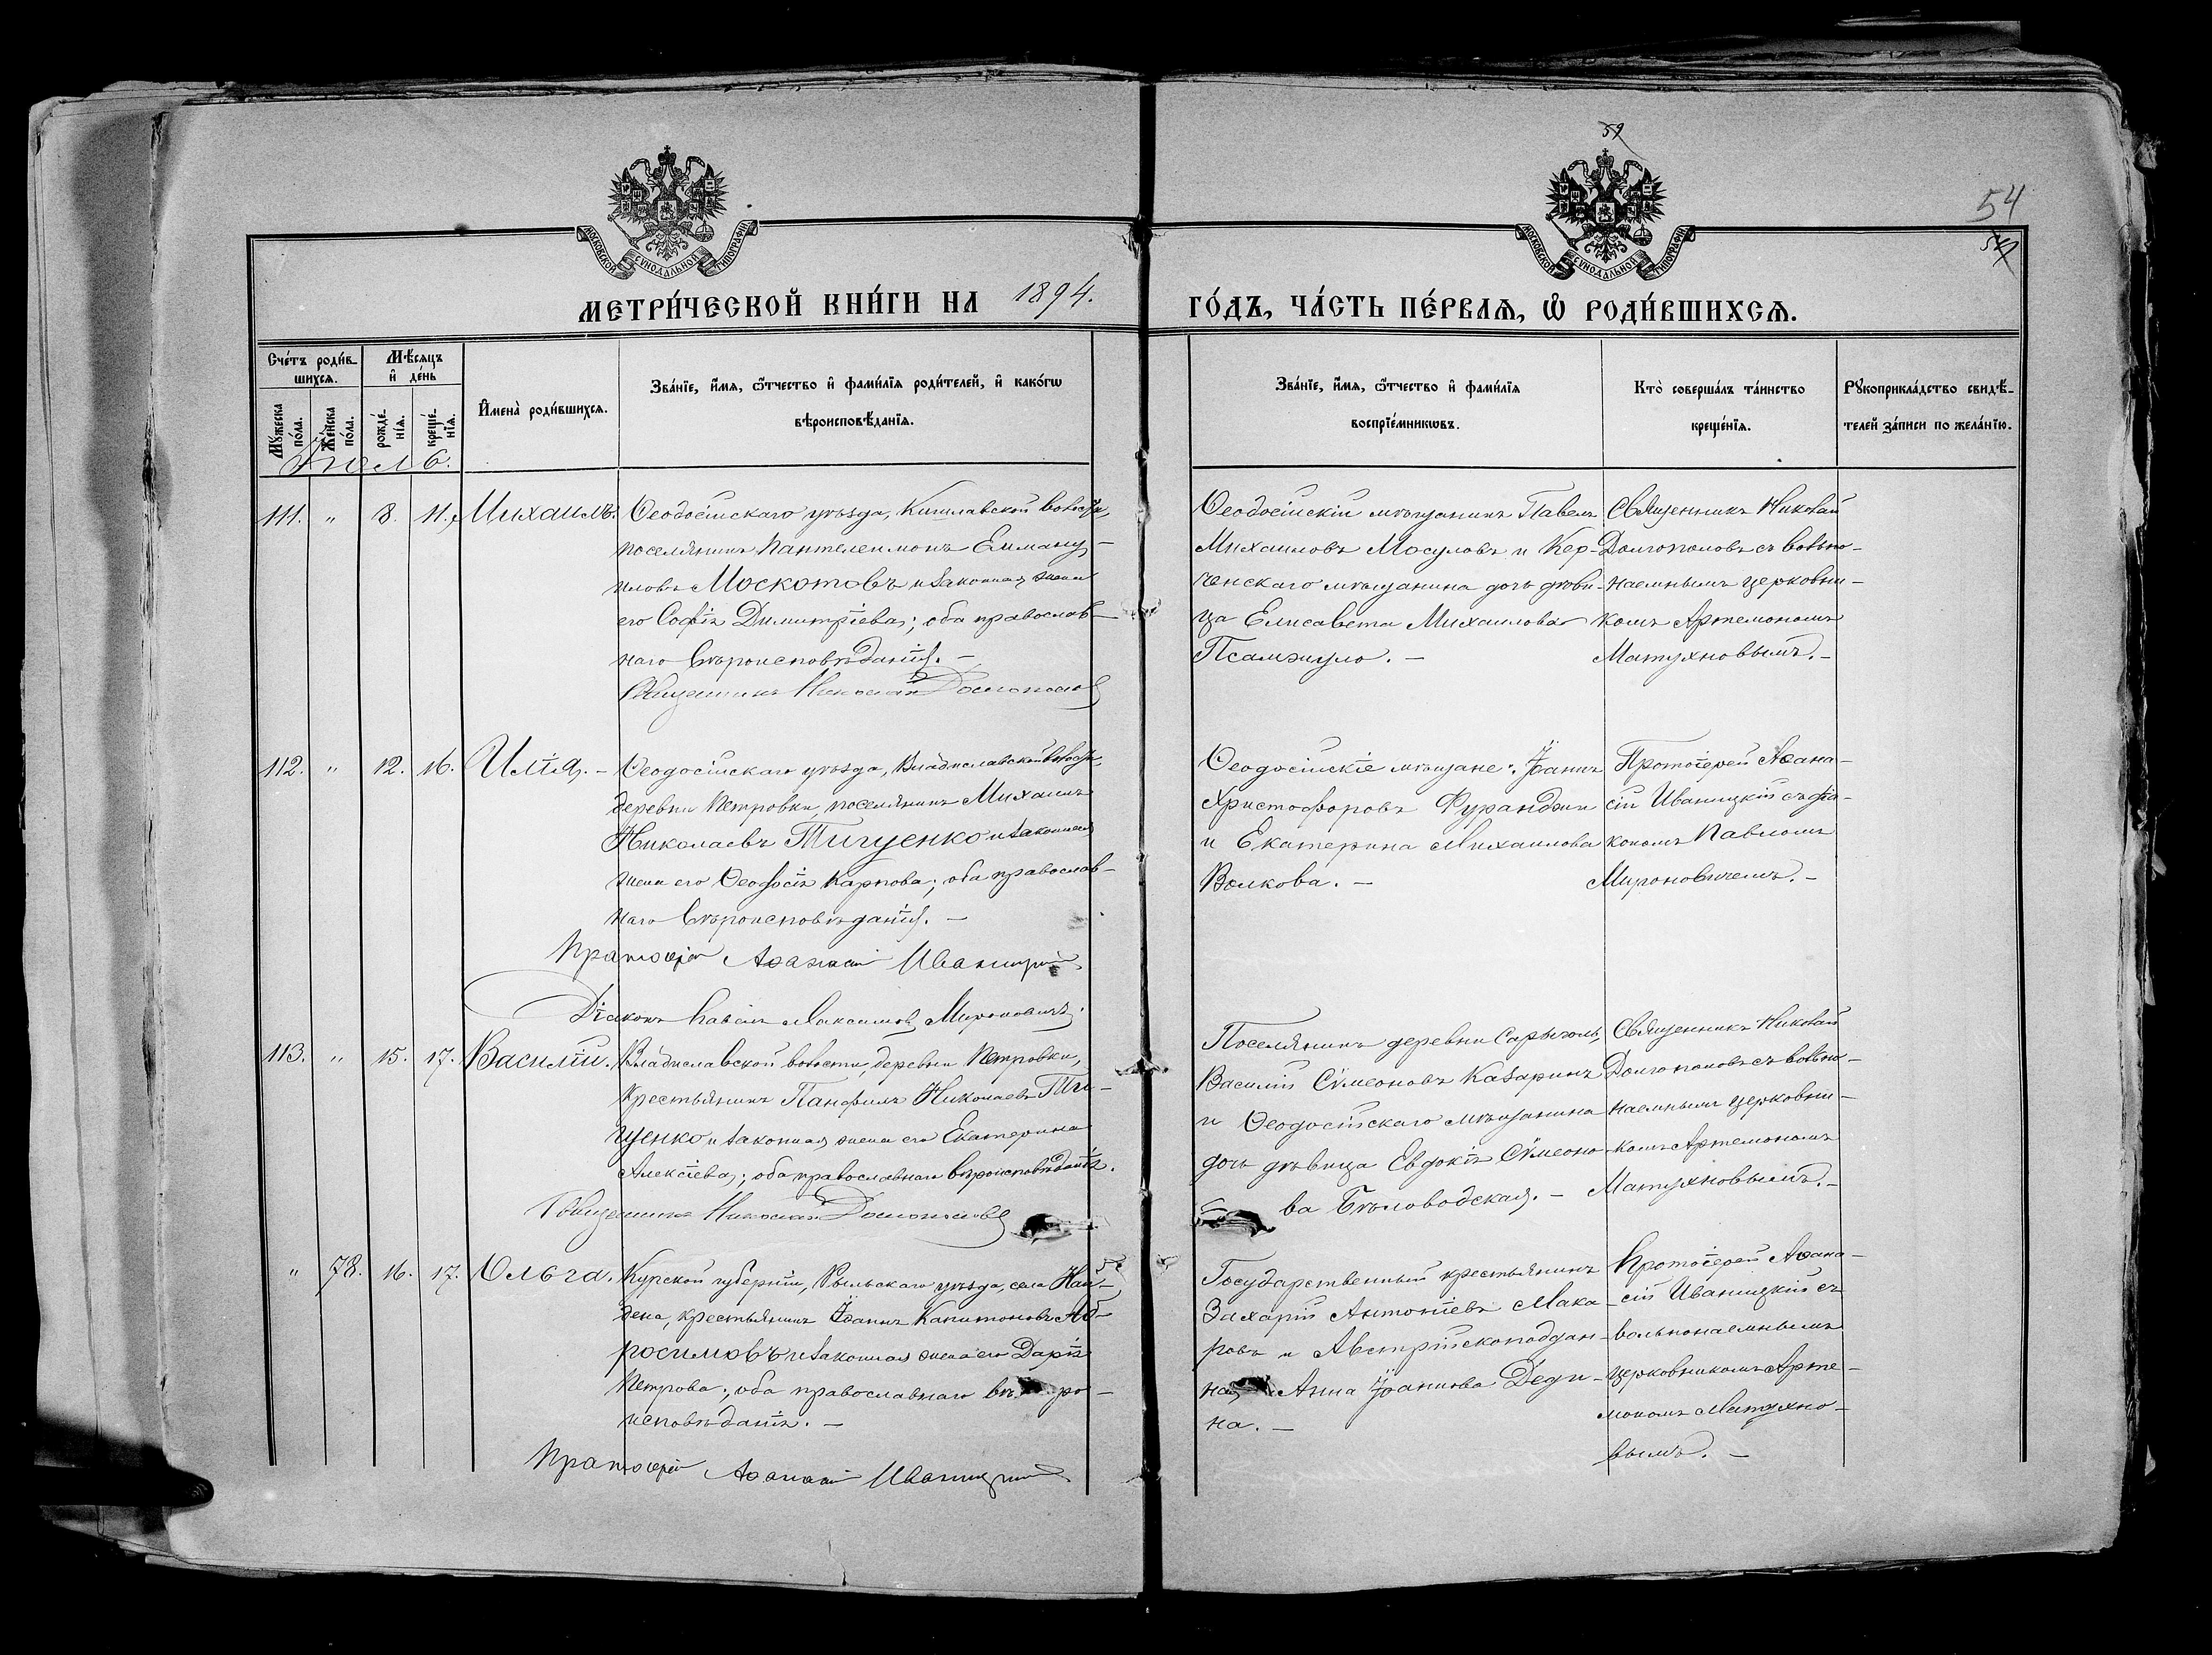 59
54
МОСКОВСКОЙ СѴНОДАЛЬНОЙ ТИПОГРАФІИ
МОСКОВСКОЙ СѴНОДАЛЬНОЙ ТИПОГРАФІИ
МЕТРИ́ЧЕСКОЙ КНИ́ГИ НА 1894.
ГО́ДЪ, ЧА́СТЬ ПЕ́РВАѦ, Ѿ РОДИ́ВШИХСѦ.
Сче́тъ роди́в-
шихсѧ.
Мѣ́сѧцъ
и҆ де́нь
Мꙋ́жеска по́ла.
Же́нска по́ла.
рожде́нїѧ.
креще́нїѧ.
И҆мена̀ роди́вшихсѧ.
Зва́нїе, и҆́мѧ, ѻ҆́тчество и҆ фами́лїѧ роди́телей, и҆ како́гѡ
вѣроисповѣ́данїѧ.
Зва́нїе, и҆́мѧ, ѻ҆́тчество и҆ фами́лїѧ
воспрїе́мникѡвъ.
Кто̀ соверша́лъ та́инство
креще́нїѧ.
Рꙋкоприкла́дство свидѣ́-
телей за́писи по жела́нїю.
Іюль.
111. " 8. 11. Михаилъ.
Ѳеодосійскаго уѣзда, Кишлавской волости,
поселянинъ Пантелеимонъ Емману-
иловъ Москотовъ и законная жена
его Софія Димитріева; оба православ-
наго вѣроисповѣданія. -
Священникъ Николай Долгополовъ
Ѳеодосійскій мѣщанинъ Павелъ
Михаиловъ Мосуловъ и Кер-
ченскаго мѣщанина дочь дѣви-
ца Елисавета Михаилова
Псамжуло. -
Священникъ Николай
Долгополовъ съ вольно-
наемнымъ церковни-
комъ Артемономъ
Матухновымъ. -
112. " 12. 16. Илія. -
Ѳеодосійскаго уѣзда, Владиславской волости,
деревни Петровки, поселянинъ Михаилъ
Николаевъ Тищенко и законная
жена его Ѳеодосія Карпова; оба православ-
наго вѣроисповѣданія. -
Протоіерей Аѳанасій Иваницкій
Діаконъ Павелъ Максимовъ Мироновичъ.
Ѳеодосійскіе мѣщане: Іоаннъ
Христофоровъ Фуранджи
и Екатерина Михаилова
Волкова. -
Протоіерей Аѳана-
сій Иваницкій съ діа-
кономъ Павломъ
Мироновичемъ. -
113. " 15. 17. Василій.
Владиславской волости, деревни Петровки,
крестьянинъ Панфилъ Николаевъ Ти-
щенко и законная жена его Екатерина
Алексіева; оба православнаго вѣроисповѣданія.
Священникъ Николай Долгополовъ
Поселянинъ деревни Сарыголь,
Василій Сѵмеоновъ Казаринъ
и Ѳеодосійскаго мѣщанина
дочь дѣвица Евдокія Сѵмеоно-
ва Бѣловодская. -
Священникъ Николай
Долгополовъ съ вольно-
наемнымъ церковни-
комъ Артемономъ
Матухновымъ. -
" 78. 16. 17. Ольга.
Курской губерніи, Рыльскаго уѣзда, села Най-
дена, крестьянинъ Іоаннъ Капитоновъ Аб-
росимовъ и законная жена его Дарія
Петрова; оба православнаго вѣро-
исповѣданія. -
Протоіерей Аѳанасій Иваницкій
Государственный крестьянинъ
Захарій Антоніевъ Мака-
ровъ и Австрійскоподдан-
ная Анна Іоаннова Деди-
на. -
Протоіерей Аѳана-
сій Иваницкій съ
вольнонаемнымъ
церковникомъ Арте-
мономъ Матухно-
вымъ. -